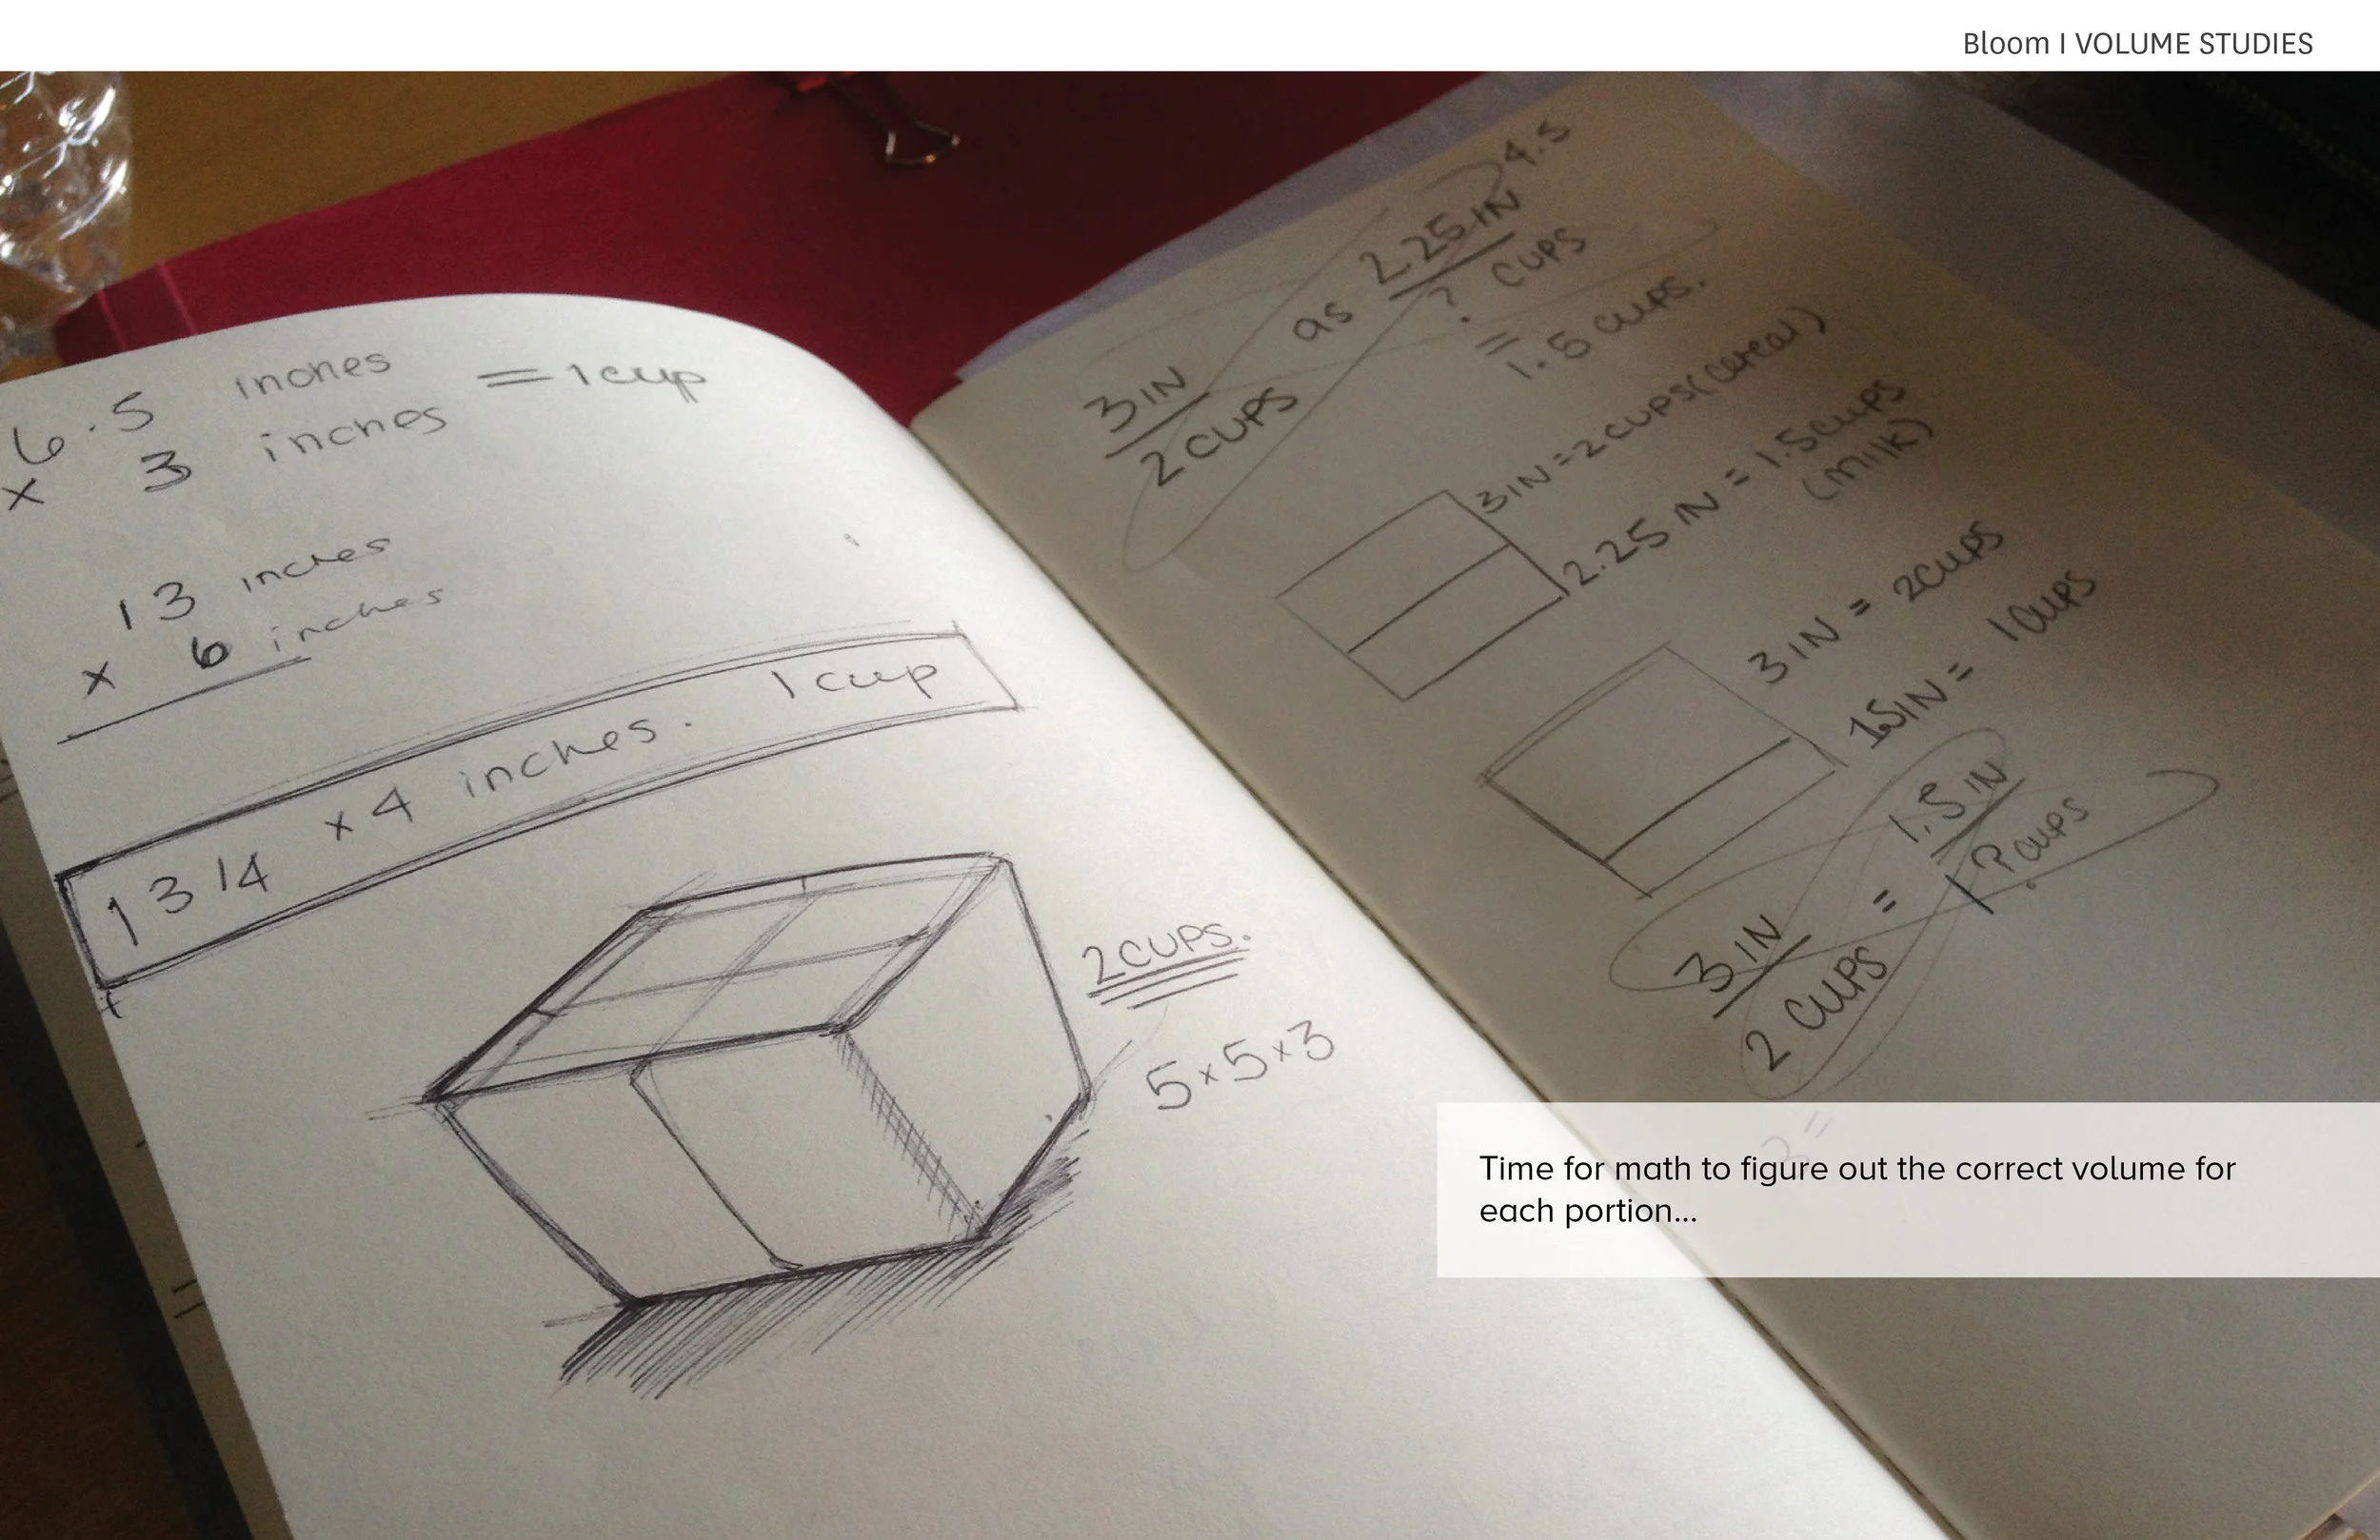 Bloom I VOLUME STUDIES
6.5 inches
x 3 inches
= 1 cup
13 inches
x 6 inches
13 1/4 x 4 inches. 1 cup
2 CUPS.
5x5x3
4.5
3 IN as 2.25 IN
2 CUPS ? CUPS
=
1.5 cups.
3 IN = 2 CUPS (cereal)
2.25 IN = 1.5 cups
(milk)
3 IN = 2 cups
1.5 IN = 1 cups
3 IN = 1.5 IN
2 CUPS ? cups
1
Time for math to figure out the correct volume for
each portion...